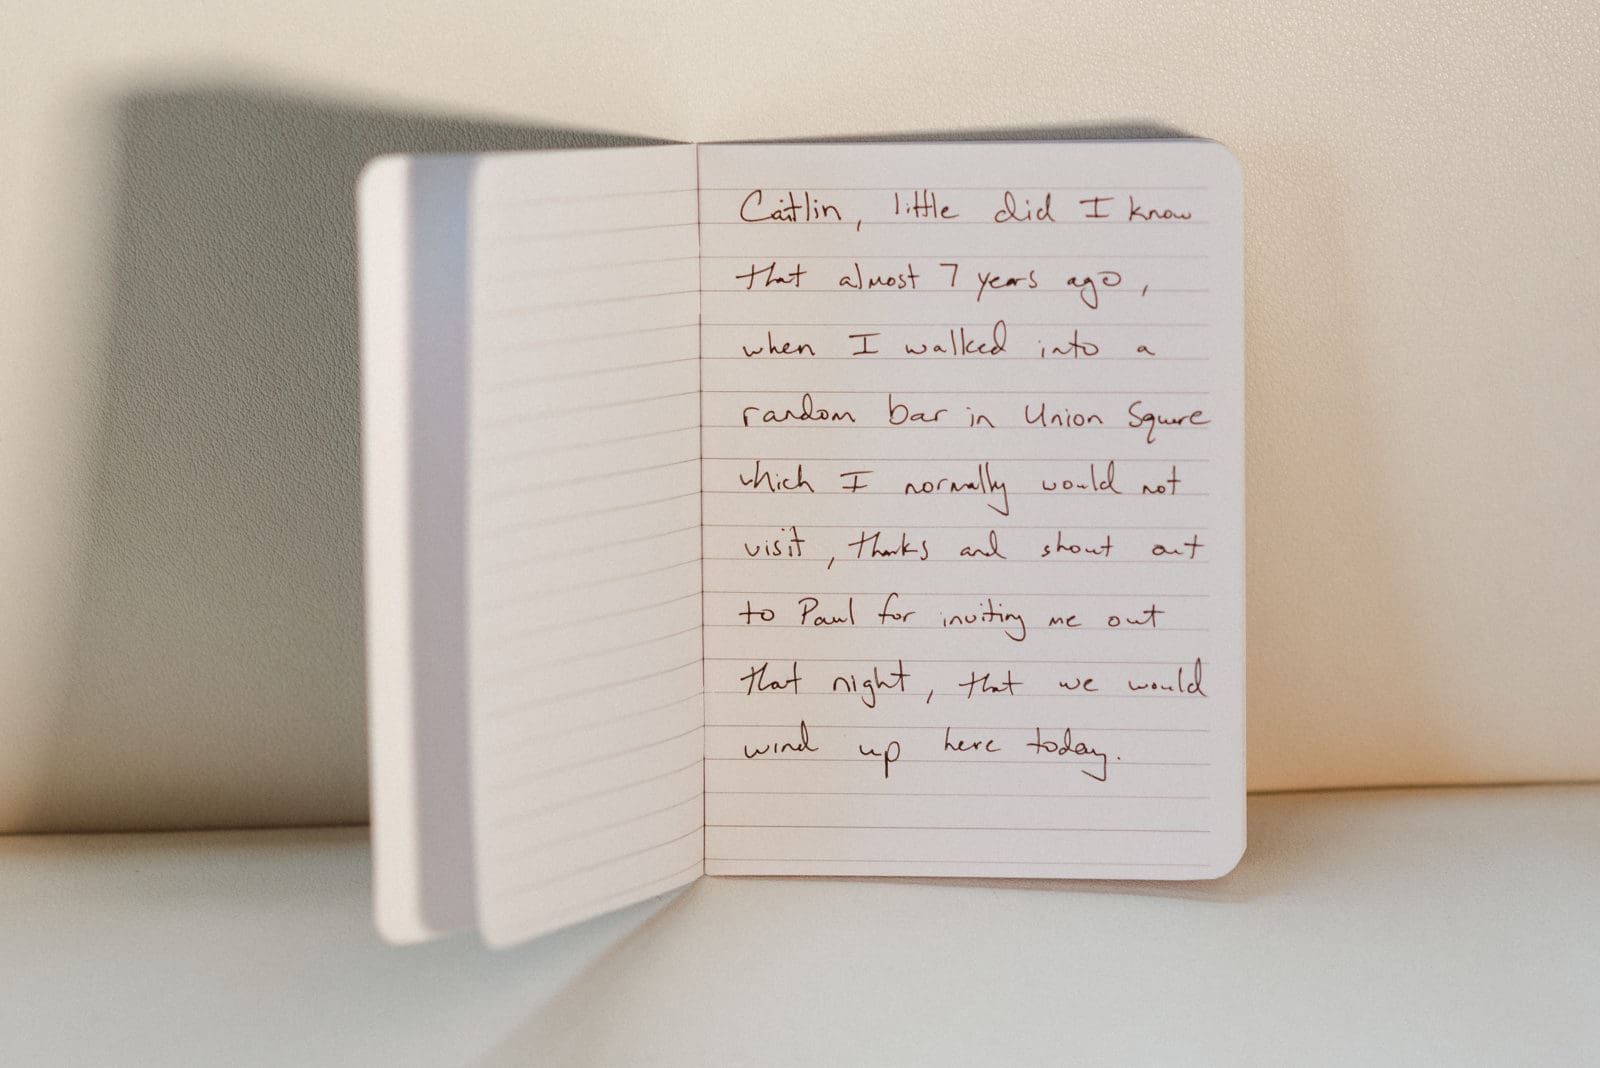 Caitlin, little did I know
that almost 7 years ago,
when I walked into a
random bar in Union Square
which I normally would not
visit, thanks and shout out
to Paul for inviting me out
that night, that we would
wind up here today.